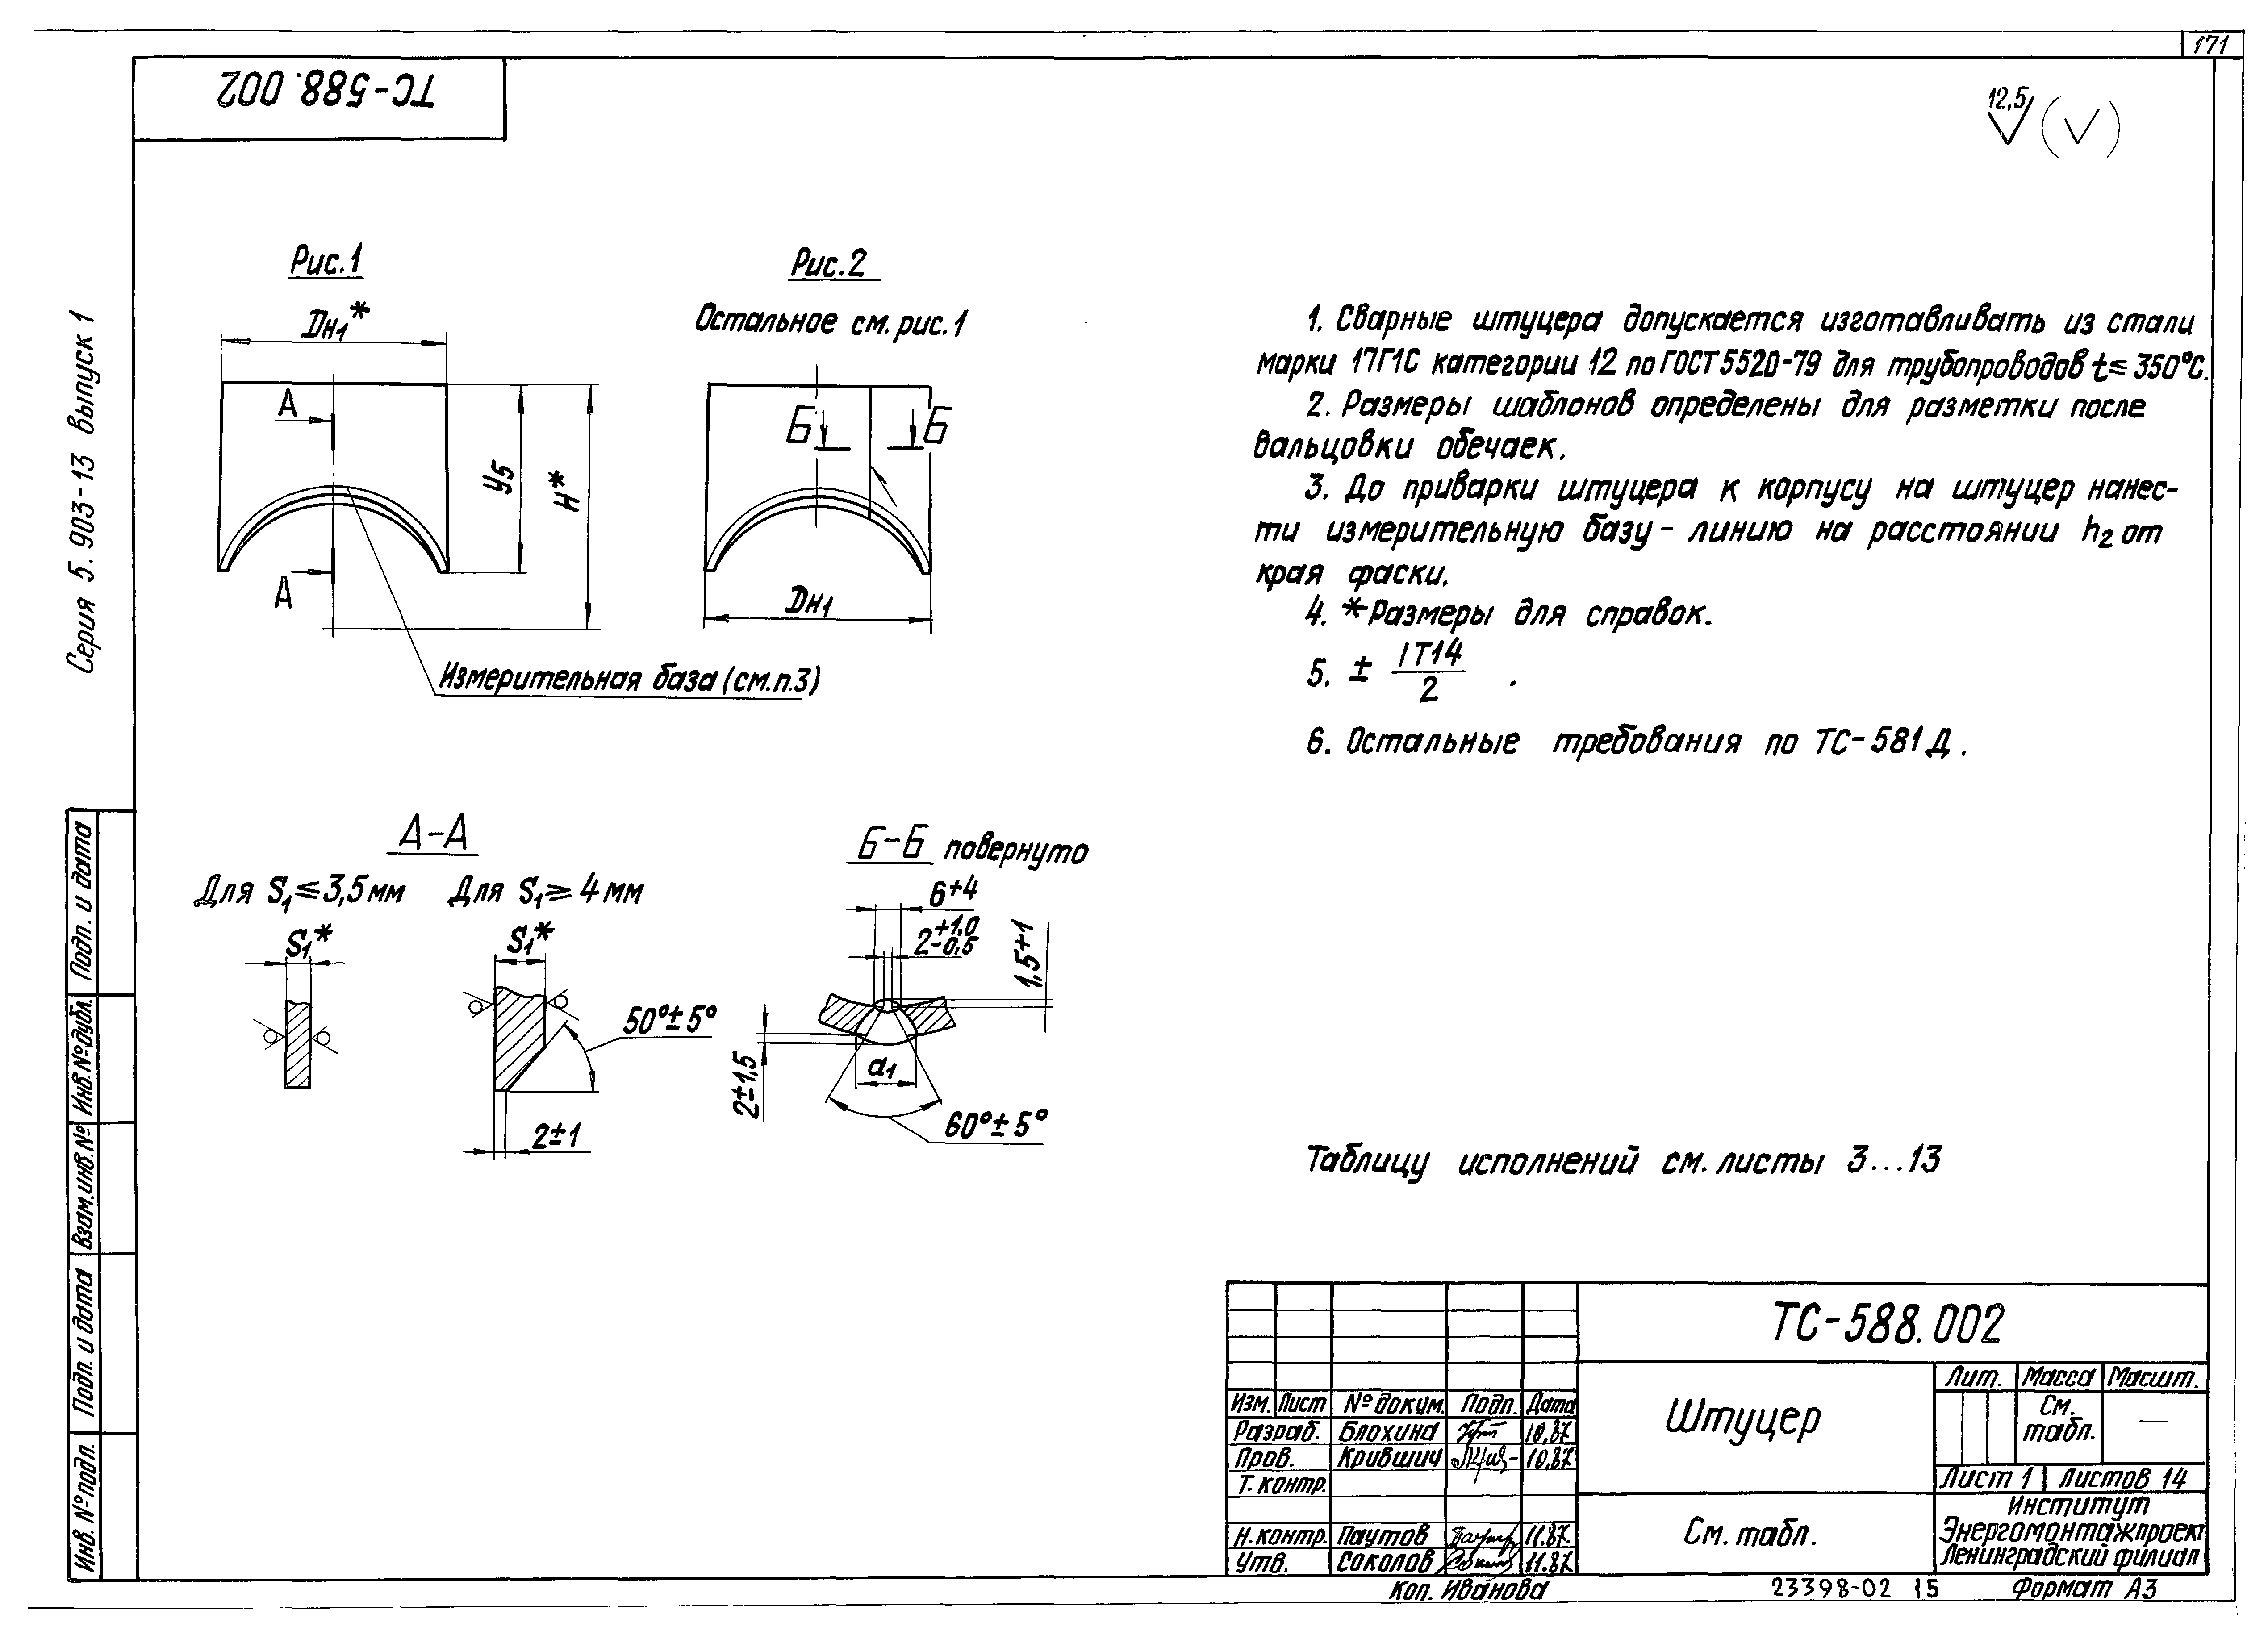 171
ТС-588.002
12,5
Серия 5.903-13 выпуск 1
Рис.1
Dн1*
А
А
У5
Н*
Измерительная база (см.п.3)
Рис.2
Остальное см. рис.1
Б
Б
Dн1
1. Сварные штуцера допускается изготавливать из стали
марки 17Г1С категории 12 по ГОСТ 5520-79 для трубопроводов t≤350°С.
2. Размеры шаблонов определены для разметки после
вальцовки обечаек.
3. До приварки штуцера к корпусу на штуцер нанес-
ти измерительную базу - линию на расстоянии h2 от
края фаски.
4. *Размеры для справок.
5. ± IT14/2 .
6. Остальные требования по ТС-581Д.
А-А
Для S1≤3,5мм
Для S1≥4мм
S1*
S1*
50°±5°
2±1
Б-Б повернуто
6+4
2+1,0-0,5
1,5+1
2±1,5
d1
60°±5°
Таблицу исполнений см. листы 3...13
Подп. и дата
Инв.№дубл.
Взам.инв.№
Подп. и дата
Инв.№подл.
ТС-588.002
Изм. Лист № докум. Подп. Дата
Разраб. Блохина 10.87
Пров. Крившич 10.87
Т.контр.
Н.контр. Паутов 11.87.
Утв. Соколов 11.87
Штуцер
Лит. Масса Масшт.
См. табл. —
Лист 1 Листов 14
См. табл.
Институт
Энергомонтажпроект
Ленинградский филиал
Коп. Иванова
23398-02 15
Формат А3